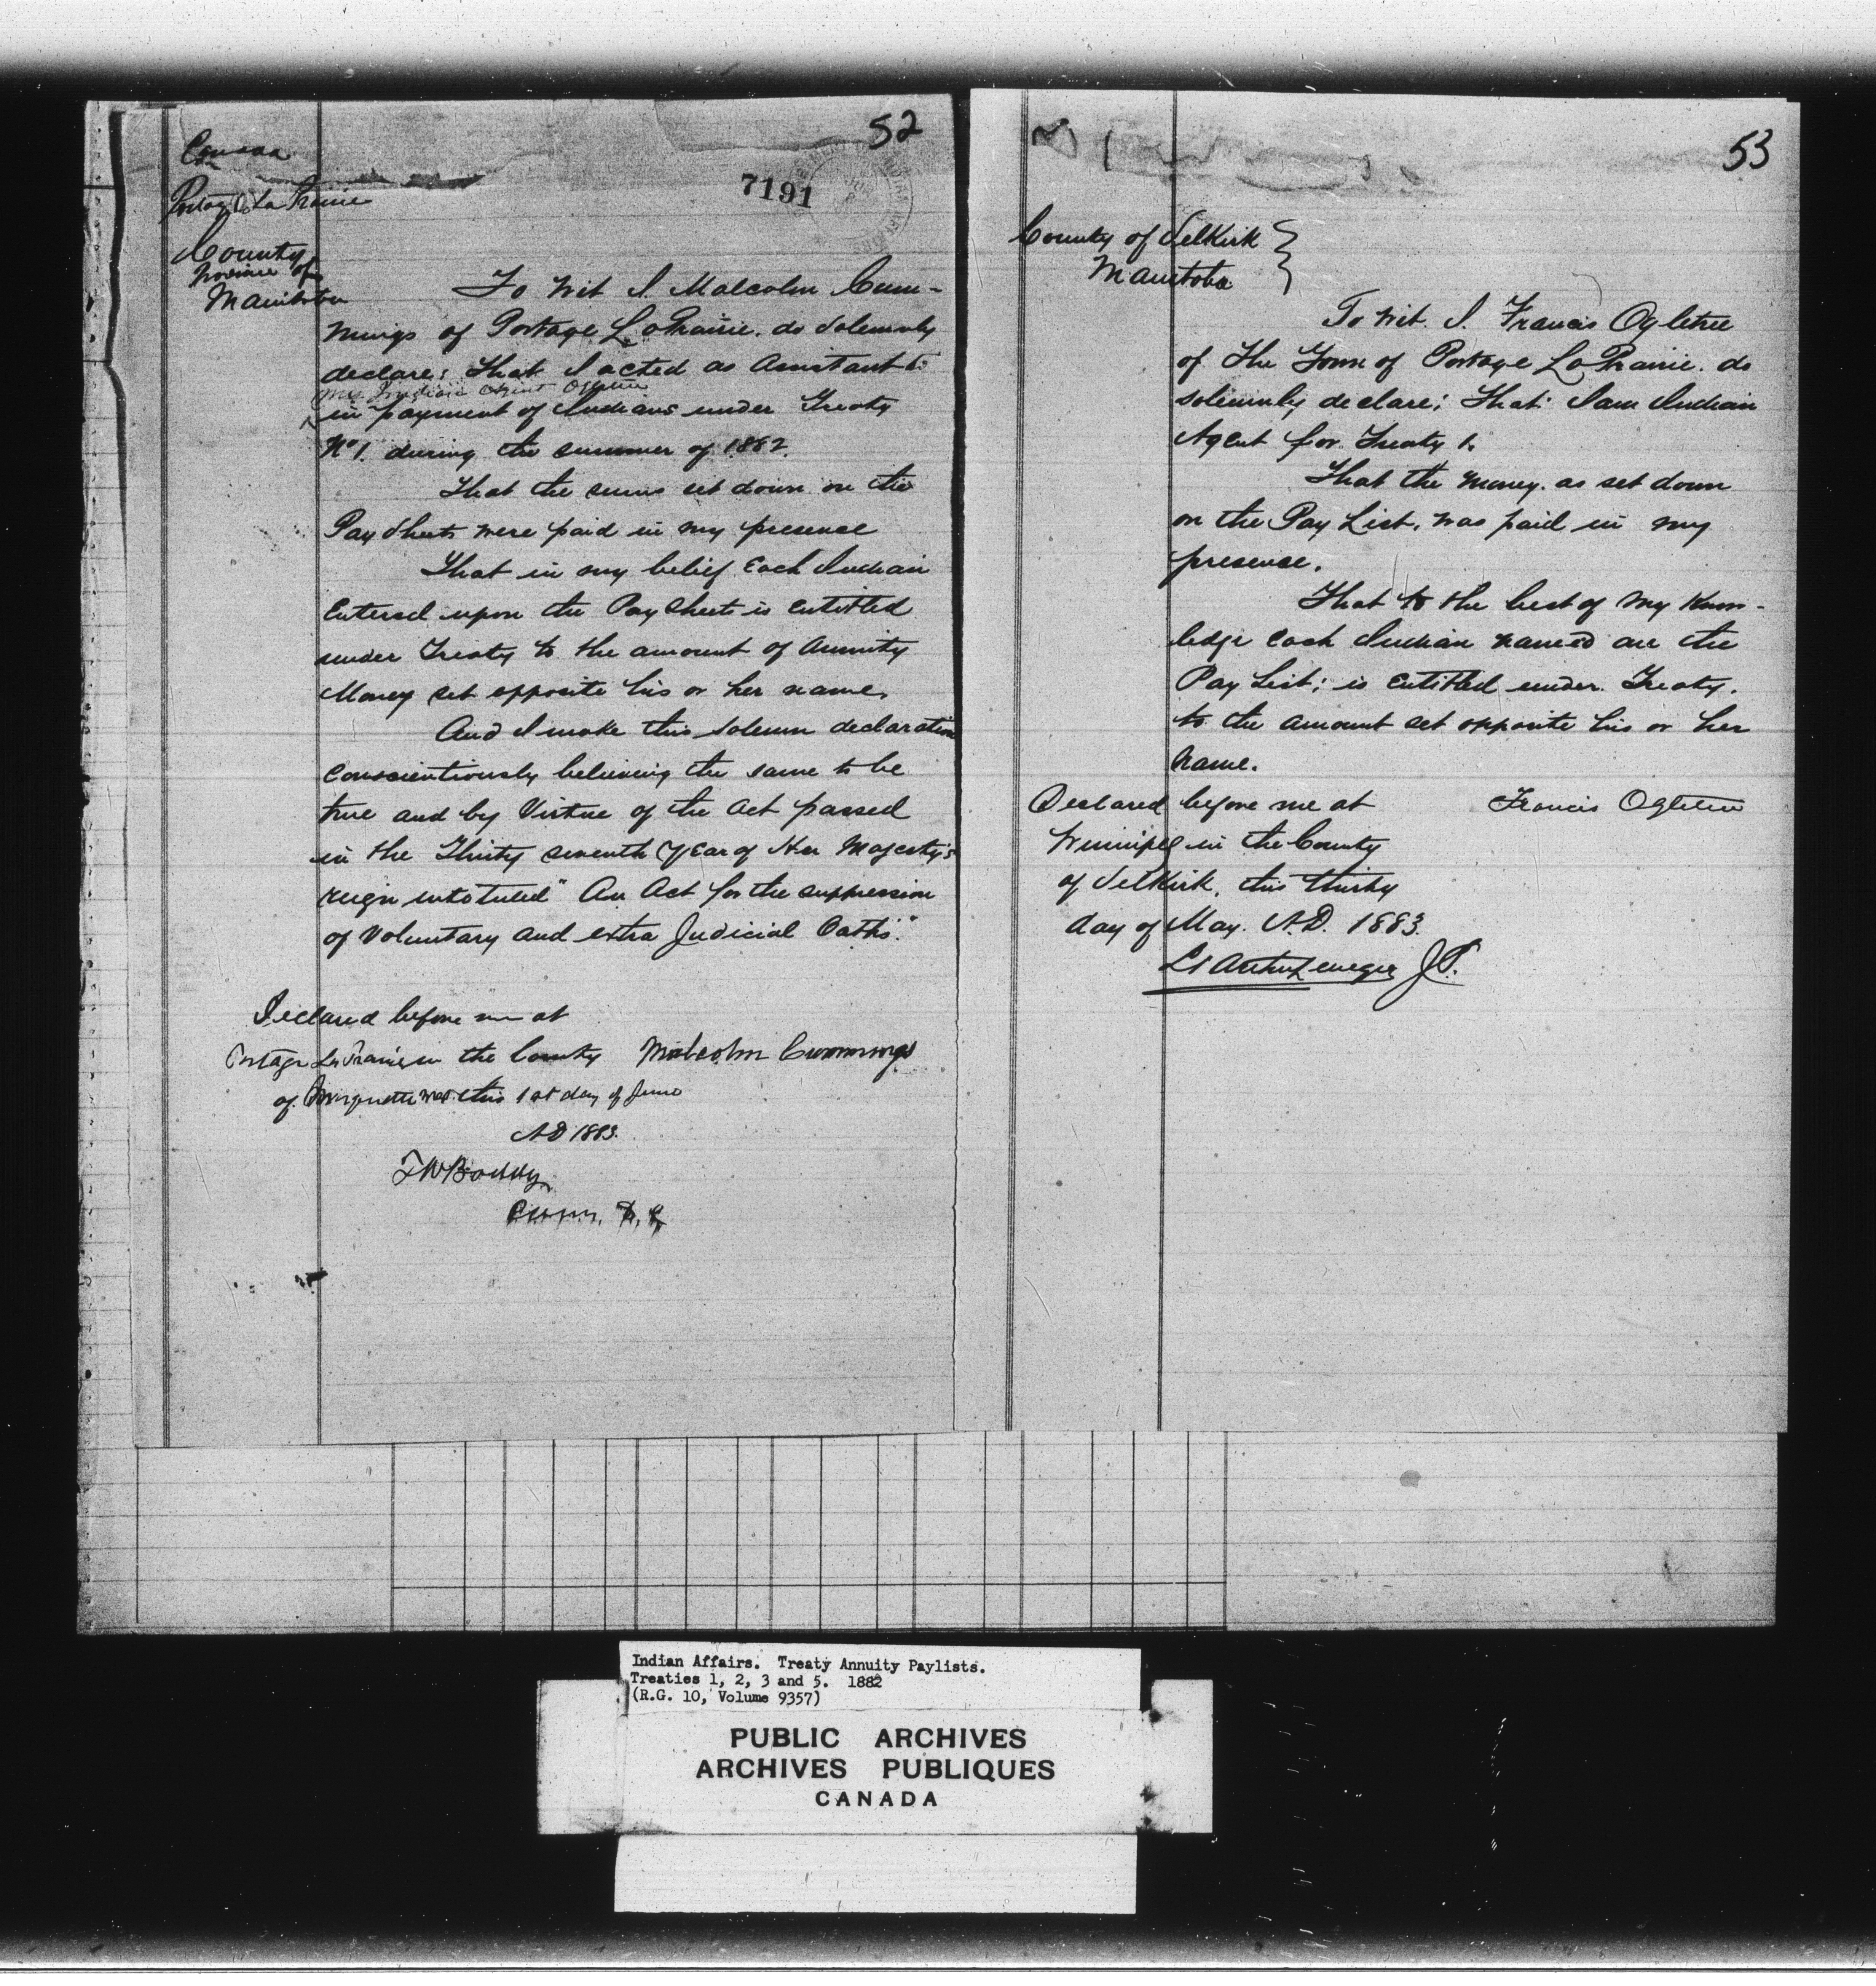 52
7191
Canada
Portage La Prairie
County
Province of
Manitoba
To Wit I. Malcolm Cum-
mings of Portage La Prairie. do Solemnly
declare: That I acted as Assistant to
Mr Indian Agent Ogletree
in payment of Indians under Treaty
No 1. during the summer of 1882.
That the sums set down on the
Pay Sheets were paid in my presence
That in my belief Each Indian
Entered upon the Pay Sheets is Entitled
under Treaty to the amount of Annuity
Money set opposite his or her name.
And I make this solemn declaration
Conscientiously believing the same to be
true and by Virtue of the Act passed
in the Thirty seventh Year of Her Majesty's
reign intituled "An Act for the suppression
of Voluntary and extra Judicial Oaths."
Declared before me at
Portage La Prairie in the County
of Marquette this 1st day of June
AD 1883.
Malcolm Cummings
Comm.
53
County of Selkirk
Manitoba
To Wit. I. Francis Ogletree
of the Town of Portage La Prairie. do
solemnly declare; That I am Indian
Agent for Treaty 1.
That the money. as set down
on the Pay List, was paid in my
presence.
That to the best of my Know-
ledge each Indian named on the
Pay List; is Entitled under Treaty.
to the amount set opposite his or her
name.
Declared before me at
Winnipeg in the County
of Selkirk. this thirty
day of May. A.D. 1883.
Francis Ogletree
J.P.
Indian Affairs. Treaty Annuity Paylists.
Treaties 1, 2, 3 and 5. 1882
(R.G. 10, Volume 9357)
PUBLIC ARCHIVES
ARCHIVES PUBLIQUES
CANADA